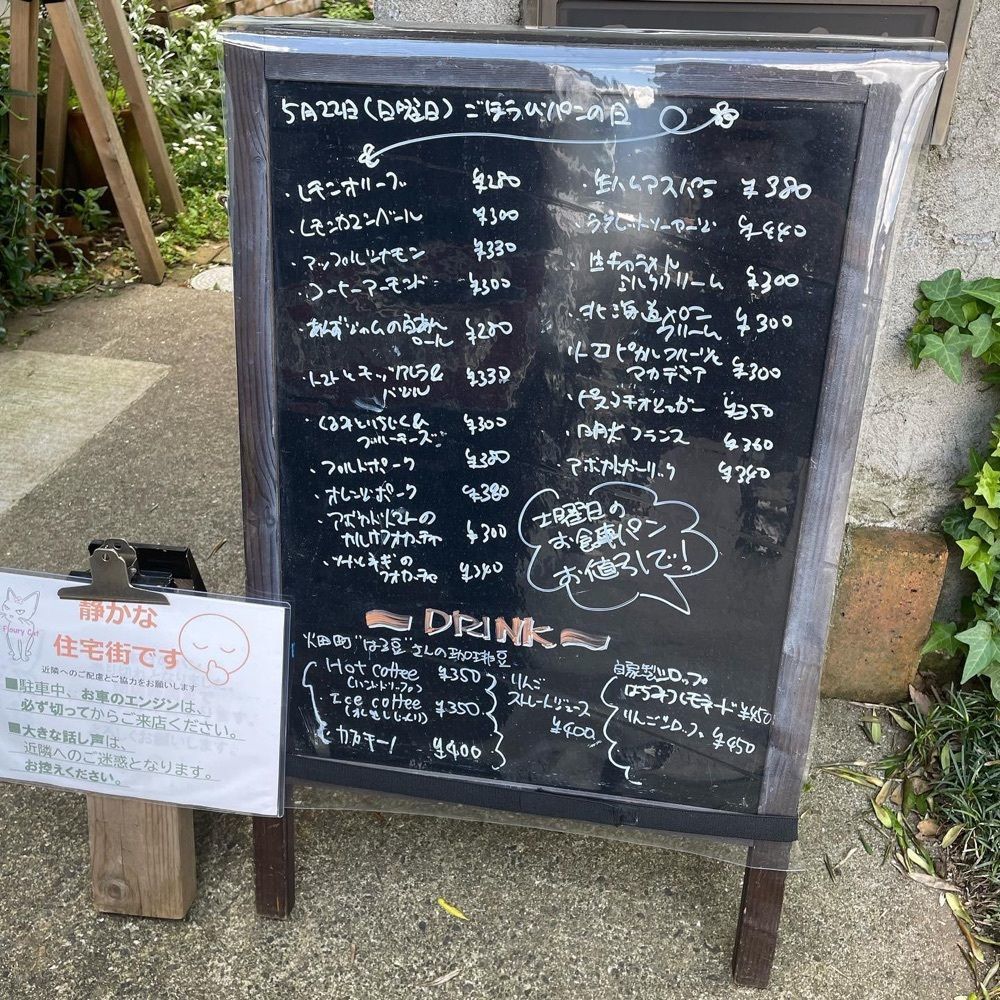 5月22日(日曜日) ごほうびパンの日
・レモンオリーブ ¥280
・レモンカマンベール ¥300
・アップルシナモン ¥330
・コーヒーアーモンド ¥300
・あんずジャムの白あん
ロール ¥280
・トマトとモッツァレラ&
バジル ¥330
・くるみといちじく&
ブルーチーズ ¥300
・フルトポーク ¥380
・オレンジポーク ¥380
・アボカドトマトの
カルツフォカッチャ ¥300
ねぎの
フォカッチャ ¥340
・生ハムアスパラ ¥380
ソーセージ ¥440
・生キャラメル
みるくクリーム ¥300
・北海道メロン
クリーム ¥300
・トロピカルフルーツと
マカデミア ¥300
・ピスタチオ ¥350
・明太フランス ¥360
・アボカドガーリック ¥340
土曜日の
お食事パン
お値ろしで!
DRINK
煙町"はる豆"さんの珈琲豆
Hot coffee ¥350
(ハンドドリップ)
Ice coffee ¥350
カプチーノ ¥400
・りんご
ストレートジュース
¥400
自家製シロップ
はちみつレモネード ¥450
りんごシロップ ¥450
Floury Cat
静かな
住宅街です
近隣へのご配慮とご協力をお願いします
■駐車中、お車のエンジンは、
必ず切ってからご来店ください。
■大きな話し声は、
近隣へのご迷惑となります。
お控えください。